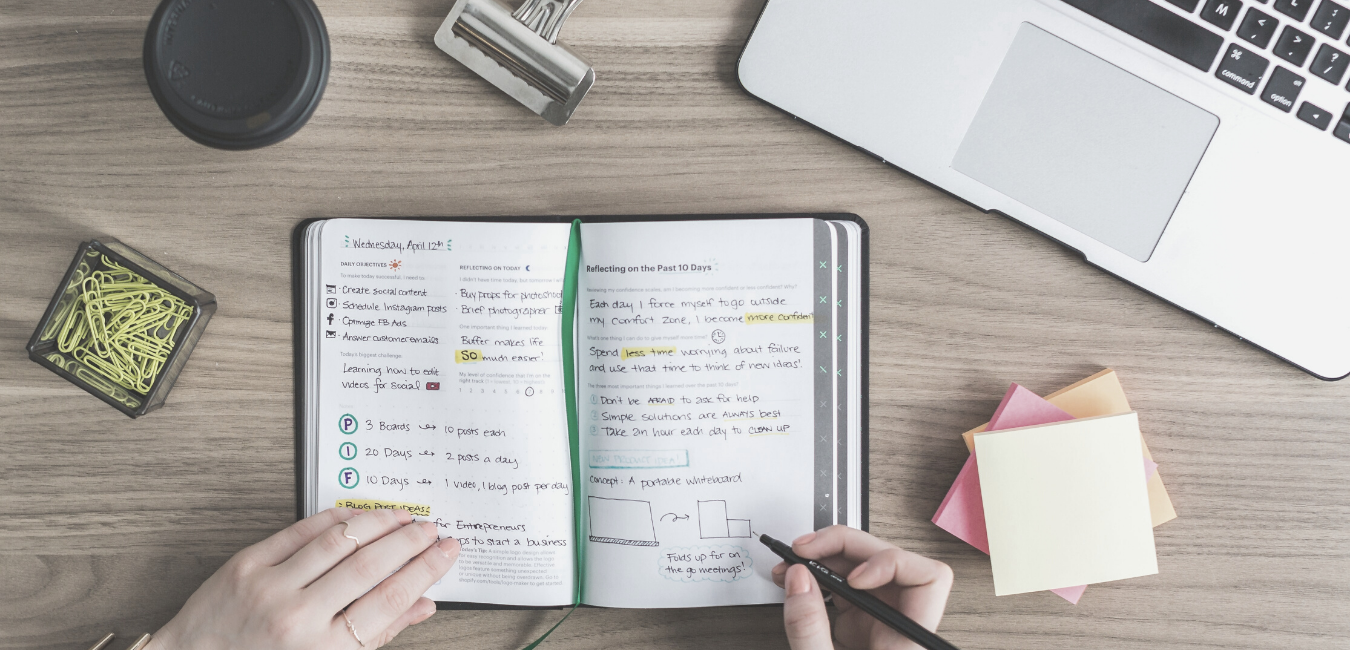 Wednesday, April 12th
DAILY OBJECTIVES
To make today successful, I need to..
· Create social content
· Schedule Instagram posts
· Optimize FB Ads
· Answer customer emails
Today's biggest challenge
Learning how to edit
videos for social
P 3 Boards → 10 posts each
I 20 Days → 2 posts a day
F 10 Days → 1 video, 1 blog post per day
BLOG POST IDEAS:
for Entrepreneurs
to start a business
REFLECTING ON TODAY
I didn't have time today, but tomorrow
· Buy props for photoshoot
· Brief photographer
One important thing I learned today
Buffer makes life
SO much easier!
My level of confidence that I'm on the
right track
1 2 3 4 5 6 7 8 9
Reflecting on the Past 10 Days
Reviewing my confidence scales, am I becoming more confident or less confident? Why?
Each day I force myself to go outside
my comfort zone, I become more confident
What's one thing I can do to give myself more time?
Spend less time worrying about failure
and use that time to think of new ideas!
The three most important things I learned over the past 10 days?
1 Don't be AFRAID to ask for help
2 Simple solutions are ALWAYS best
3 Take an hour each day to CLEAN UP
NEW PRODUCT IDEA!
Concept: A portable whiteboard
Folds up for on
the go meetings!
M
<
>
?
/
⌘
command
alt
option